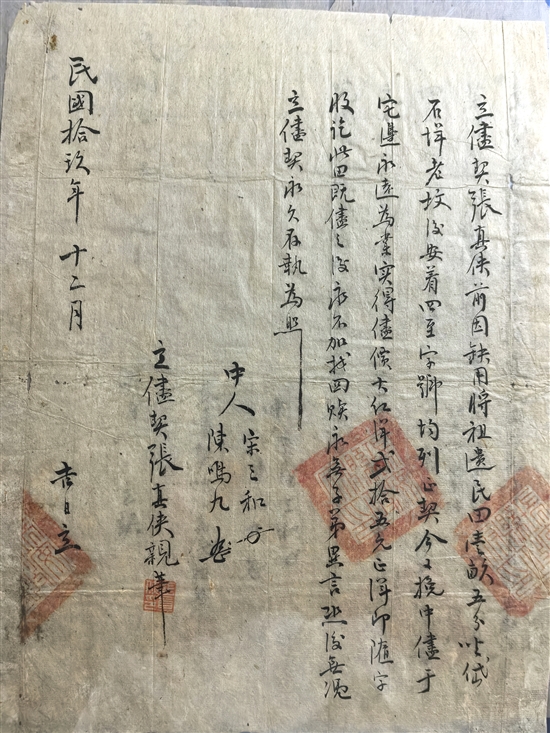 立儘契張真俠前因缺用將祖遺民田壹畝五分坐岱
石垟老坟後安着四至字號均列正契今又挽中儘于
宅邊永遠為業實得儘價大紅洋貳拾五元正洋即隨字
收訖此田既儘之後永不加找回贖永無子弟異言恐後無憑
立儘契永久存執為照
中人 宋三和
陳鳴九
立儘契張真俠親筆
民國拾玖年 十二月 吉日立